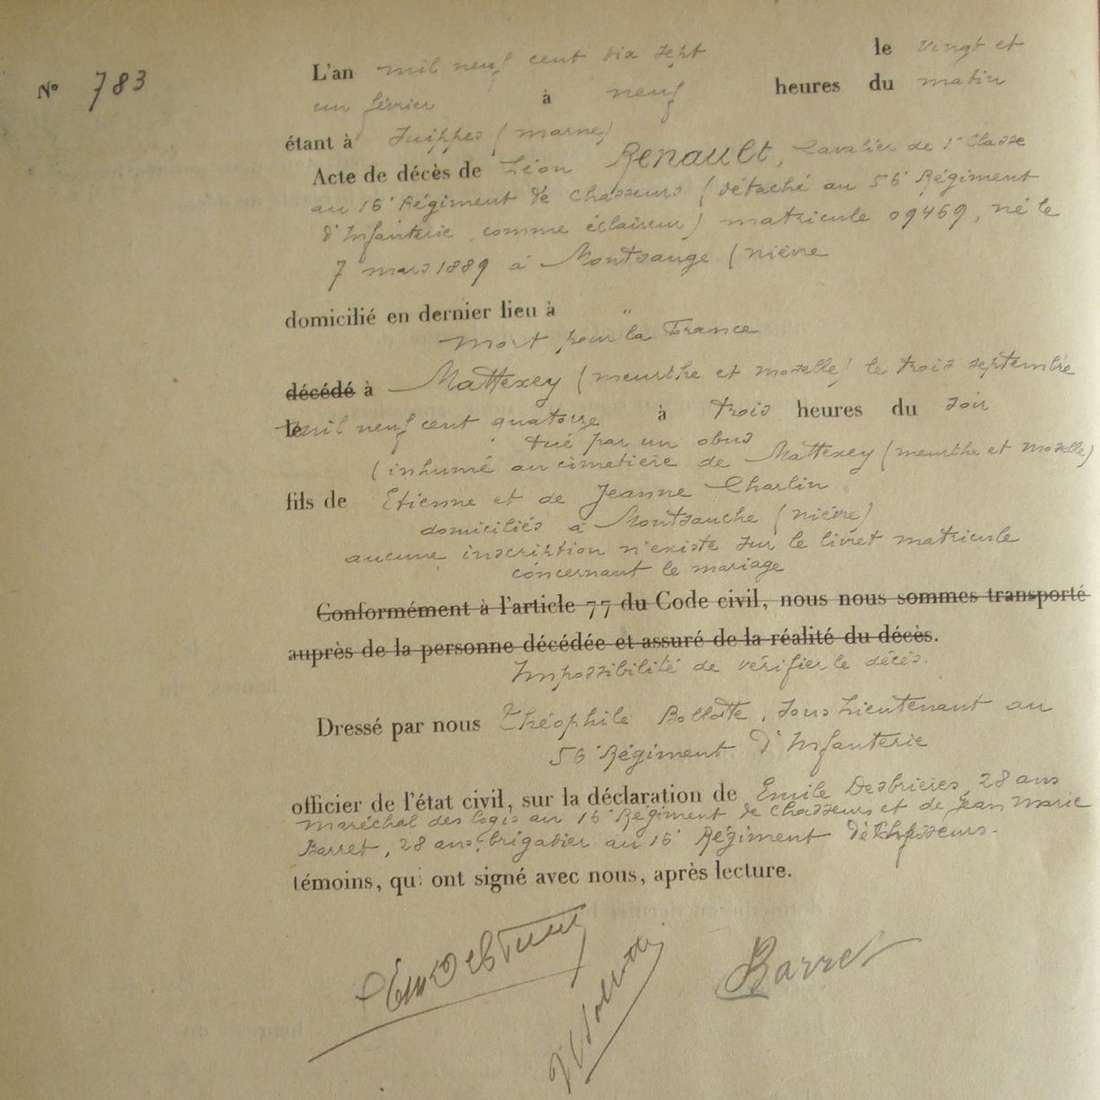 N° 783
L'an mil neuf cent dix sept le vingt et
un février à neuf heures du matin
étant à Suippes (marne)
Acte de décès de Léon RENAULT, Cavalier de 1e Classe
au 16e Régiment de Chasseurs (détaché au 56e Régiment
d'Infanterie comme éclaireur) matricule 09469, né le
7 mars 1889 à Montsauge (nièvre
domicilié en dernier lieu à "
Mort pour la France
décédé à Mattexey (meurthe et moselle) le trois septembre
le mil neuf cent quatorze à trois heures du soir
tué par un obus
(inhumé au cimetière de Mattexey (meurthe et moselle)
fils de Etienne et de Jeanne Charlin
domiciliés à Montsauche (nièvre)
aucune inscription n'existe sur le livret matricule
concernant le mariage
Conformément à l'article 77 du Code civil, nous nous sommes transporté
auprès de la personne décédée et assuré de la réalité du décès.
Impossibilité de vérifier le décès.
Dressé par nous Théophile Bollotte, sous Lieutenant au
56e Régiment d'Infanterie
officier de l'état civil, sur la déclaration de Emile Desbrières, 28 ans
maréchal des logis au 16e Régiment de Chasseurs et de Jean Marie
Barret, 28 ans, brigadier au 16e Régiment de Chasseurs.
témoins, qui ont signé avec nous, après lecture.
Barret